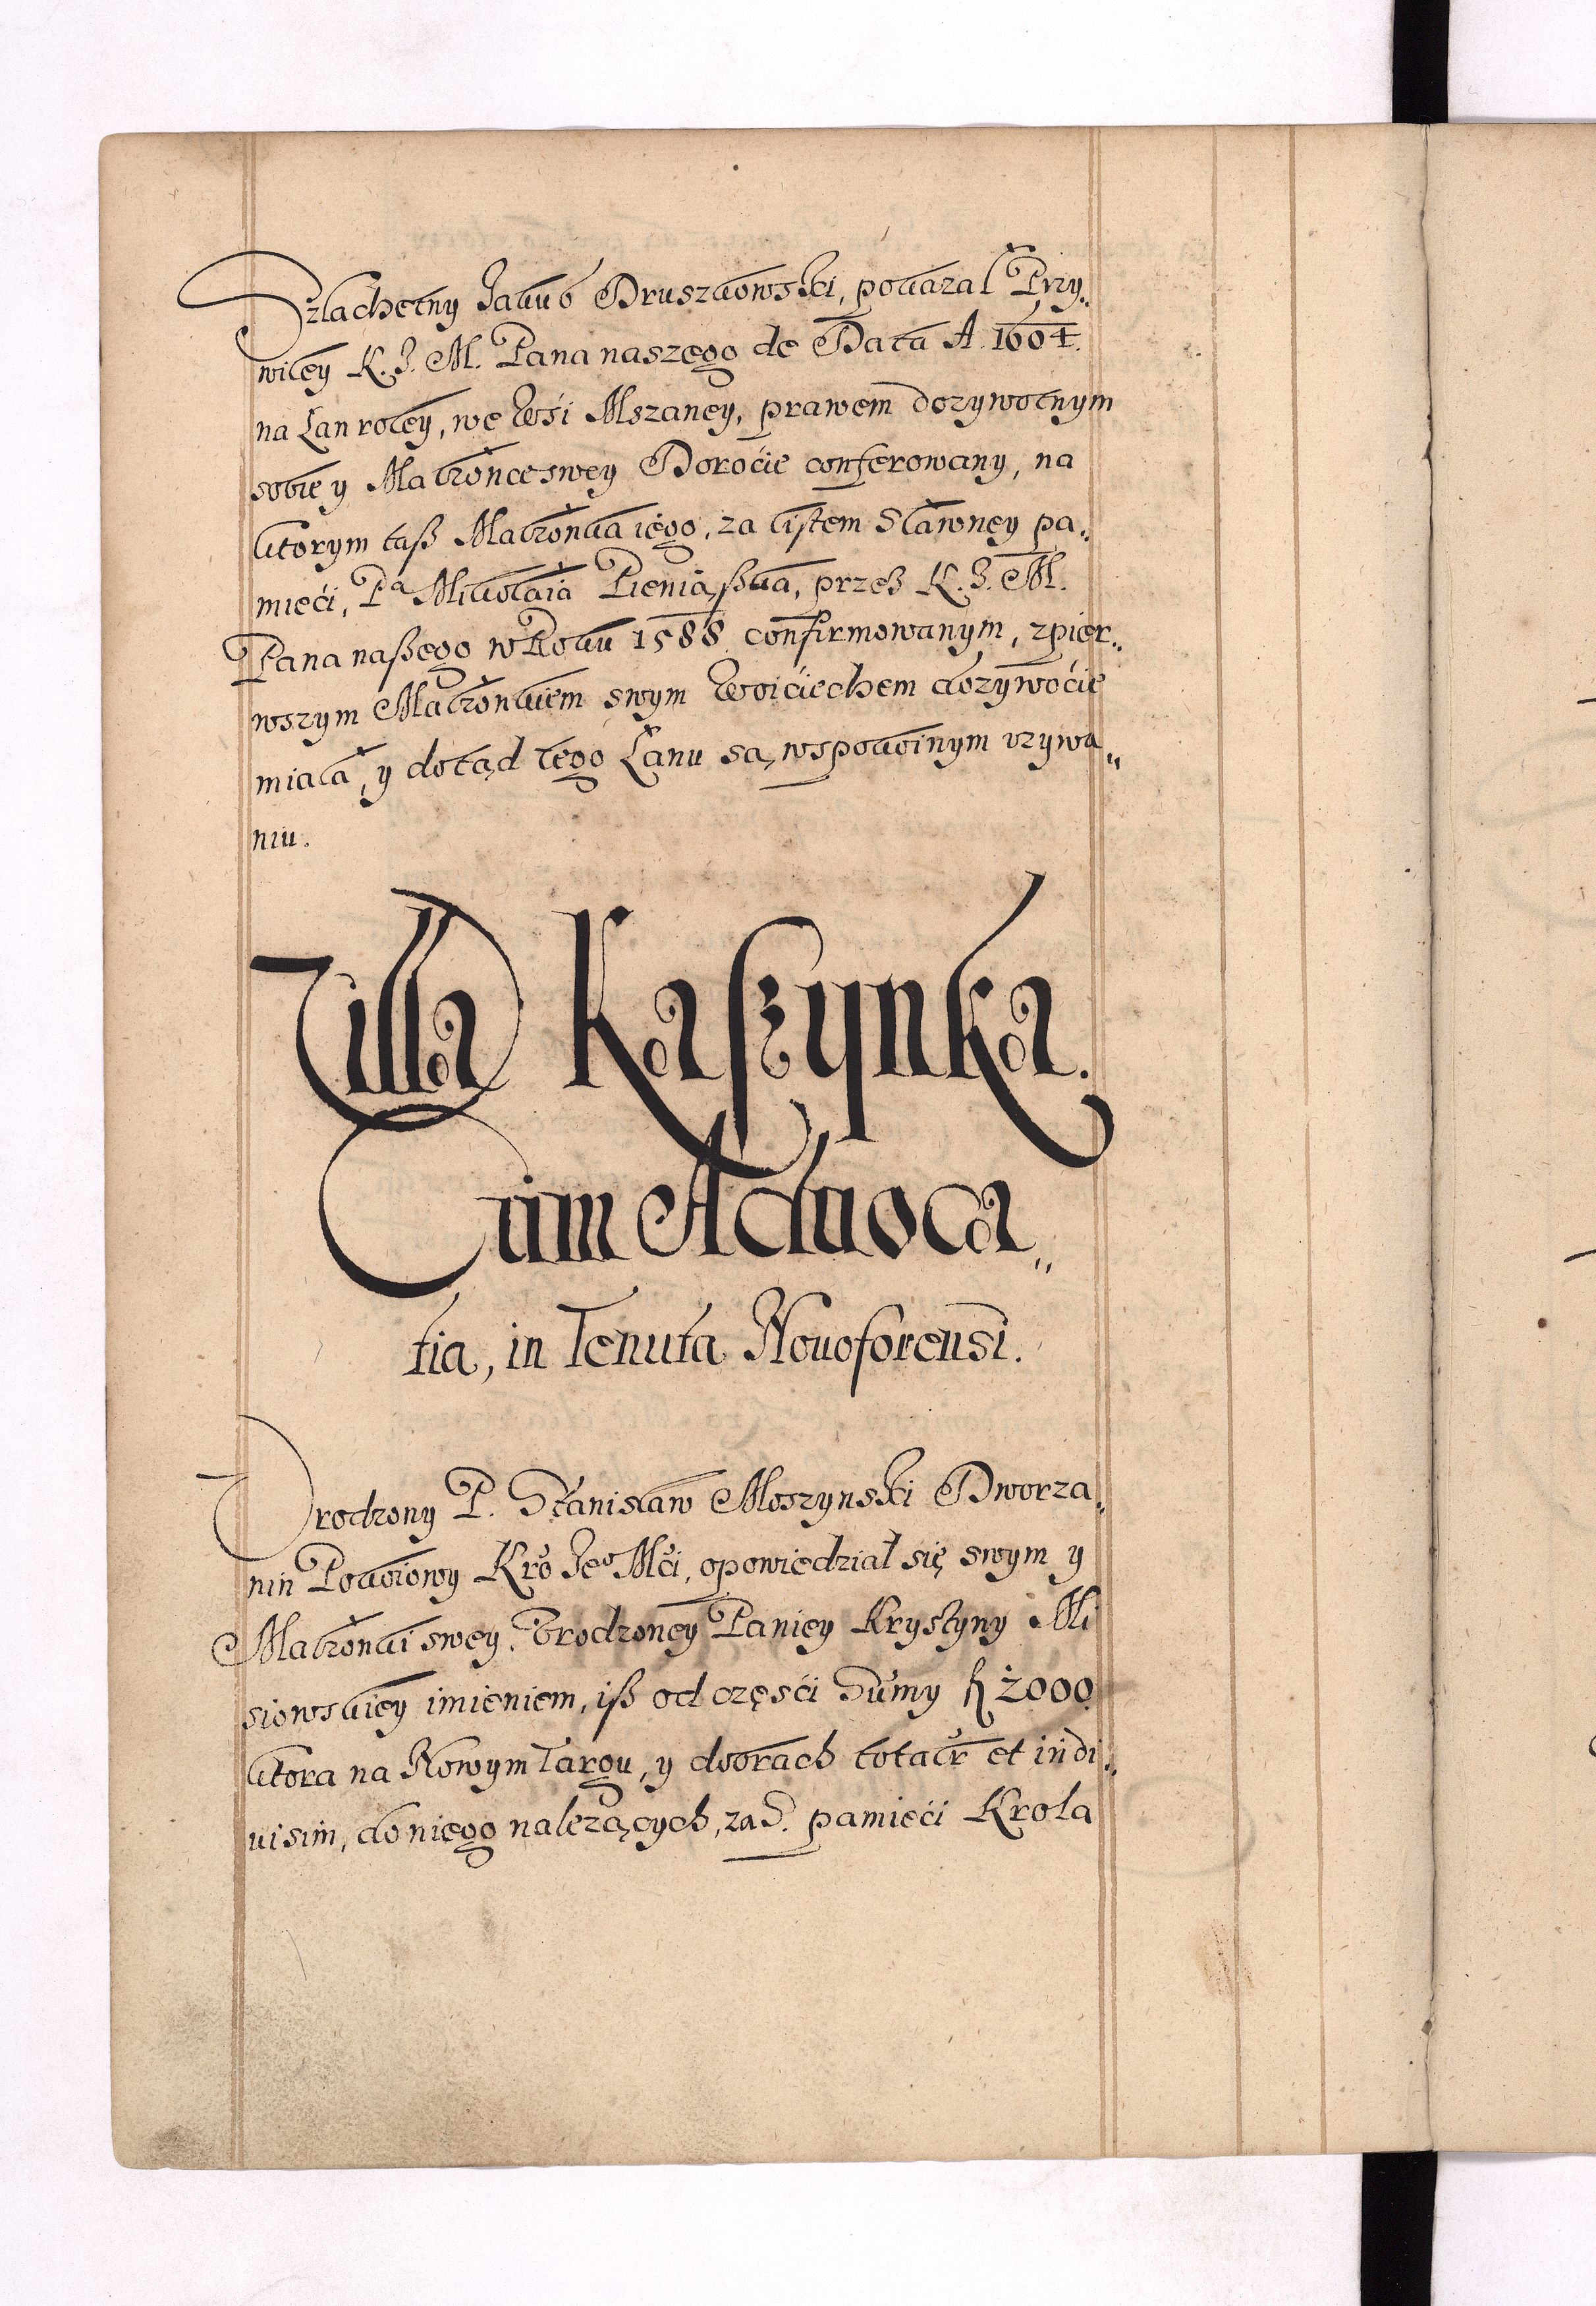 Szlachetny Jakub Druszkowski, pokazal Przy„
wiley K. J. M. Pana naszego de Data A. 1604.
na Lan roley, we Wsi Mszaney, prawem dozywotnym
sobie y Malzonce swey Dorocie conferowany, na
ktorym taß Malzonka iego, za listem Slawney pa„
mieći, Pa Mikolaia Pieniąßka, przeß K. J. M.
Pana naßego w Roku 1588 confirmowanym, zpier„
wszym Malzonkiem swym Woiciechem dozywocie
miala, y dotąd tego Lanu są, wspokoinym vzywa„
niu.
Villa Kaszynka.
Cum Aduoca„
tia, in Tenuta Nouoforensi.
Vrodzony P. Stanislaw Moszynski Dworza„
nin Pokoiowy Kro Jeo Mći, opowiedział się swym y
Malzonki swey, Vrodzoney Paniey Krystyny Mi
siowskiey imieniem, iß od częsci Sumy fl 2000
ktora na Nowym Targu, y dobrach totalr et indi„
uisim, do niego nalezących, za S. pamieći Krola